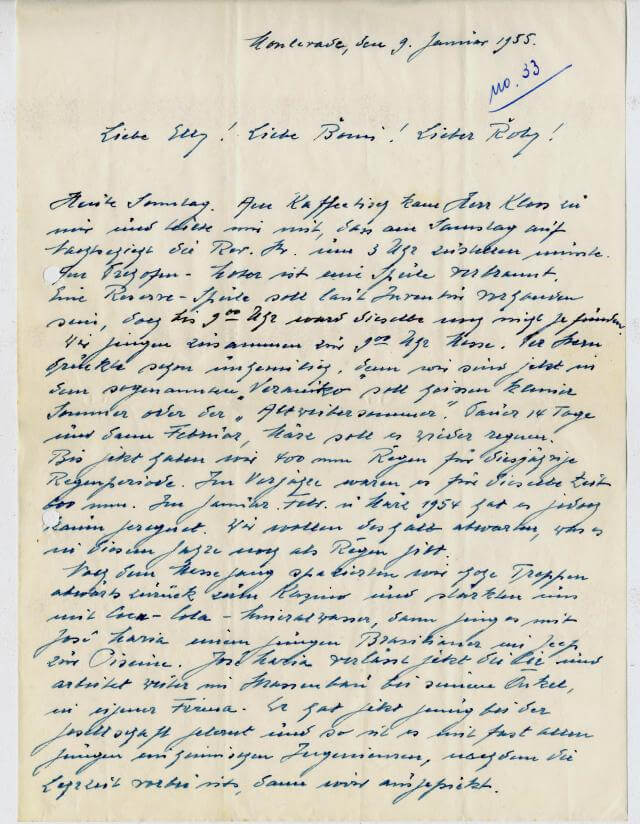 Monlevade, den 9. Januar 1955.
no. 33
Liebe Elly! Liebe Bomi! Lieber Roby!
Heute Sonntag. Am Kaffeetisch kam Herr Kloos zu
mir und teilte mir mit, dass am Samstag auf
die Rev. Str. um 3 Uhr zustellen musste.
Motor ist eine Spule verbrannt.
Eine Reserve-Spule soll laut Inventur vorhanden
sein, doch bis 9⁰⁰ Uhr ward dieselbe noch nicht gefunden.
Wir gingen zusammen zur 9⁰⁰ Uhr Messe. Der Stern
drückte schon ungemütlich, denn wir sind jetzt in
dem sogenannten "Veraniko" soll heissen kleiner
Sommer oder der "Altweibersommer". Dauer 14 Tage
und dann Februar, März soll es wieder regnen.
Bis jetzt haben wir 400 mm Regen für diesjährige
Regenperiode. Im Vorjahre waren es für dieselbe Zeit
600 mm. Im Januar. Febr. u März 1954 hat es jedoch
kaum geregnet. Wir wollen deshalb abwarten, was es
in diesem Jahre noch als Regen gibt.
Nach dem Messegang spazierten wir hohe Treppen
abwärts zurück zum Kasino und stärkten uns
mit Coca-Cola - Mineralwasser, dann ging es mit
José Maria einem jungen Brasilianer im Jeep
zur Piscine. José Maria verlässt jetzt die Cie und
arbeitet weiter im Strassenbau bei seinem Onkel,
in eigener Firma. Er hat jetzt genug bei der
Gesellschaft gelernt und so ist es mit fast allen
jungen einheimischen Ingenieuren, nachdem die
Lehrzeit vorbei ist, dann wird ausgerückt.